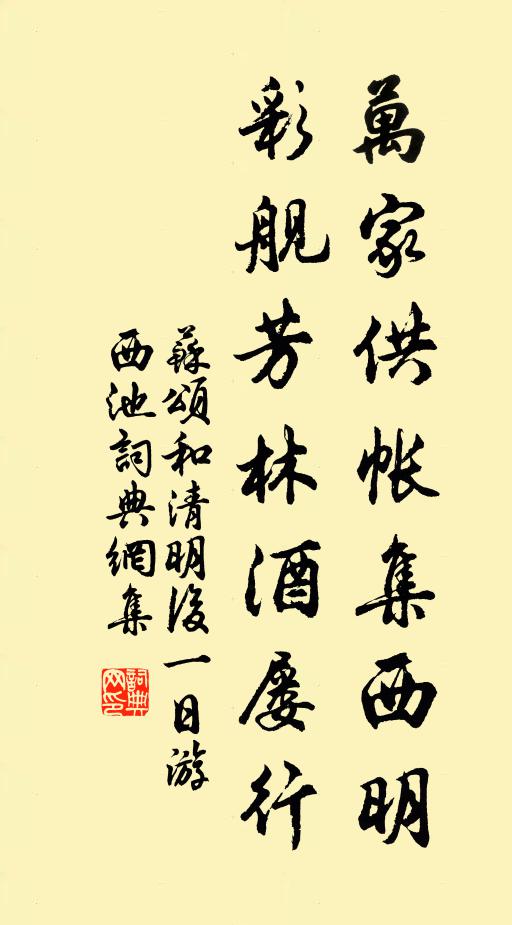 萬家供帐集西明
彩舰芳林酒屡行
蘇頌和清明後一日游
西池詞典網集
詞典网印